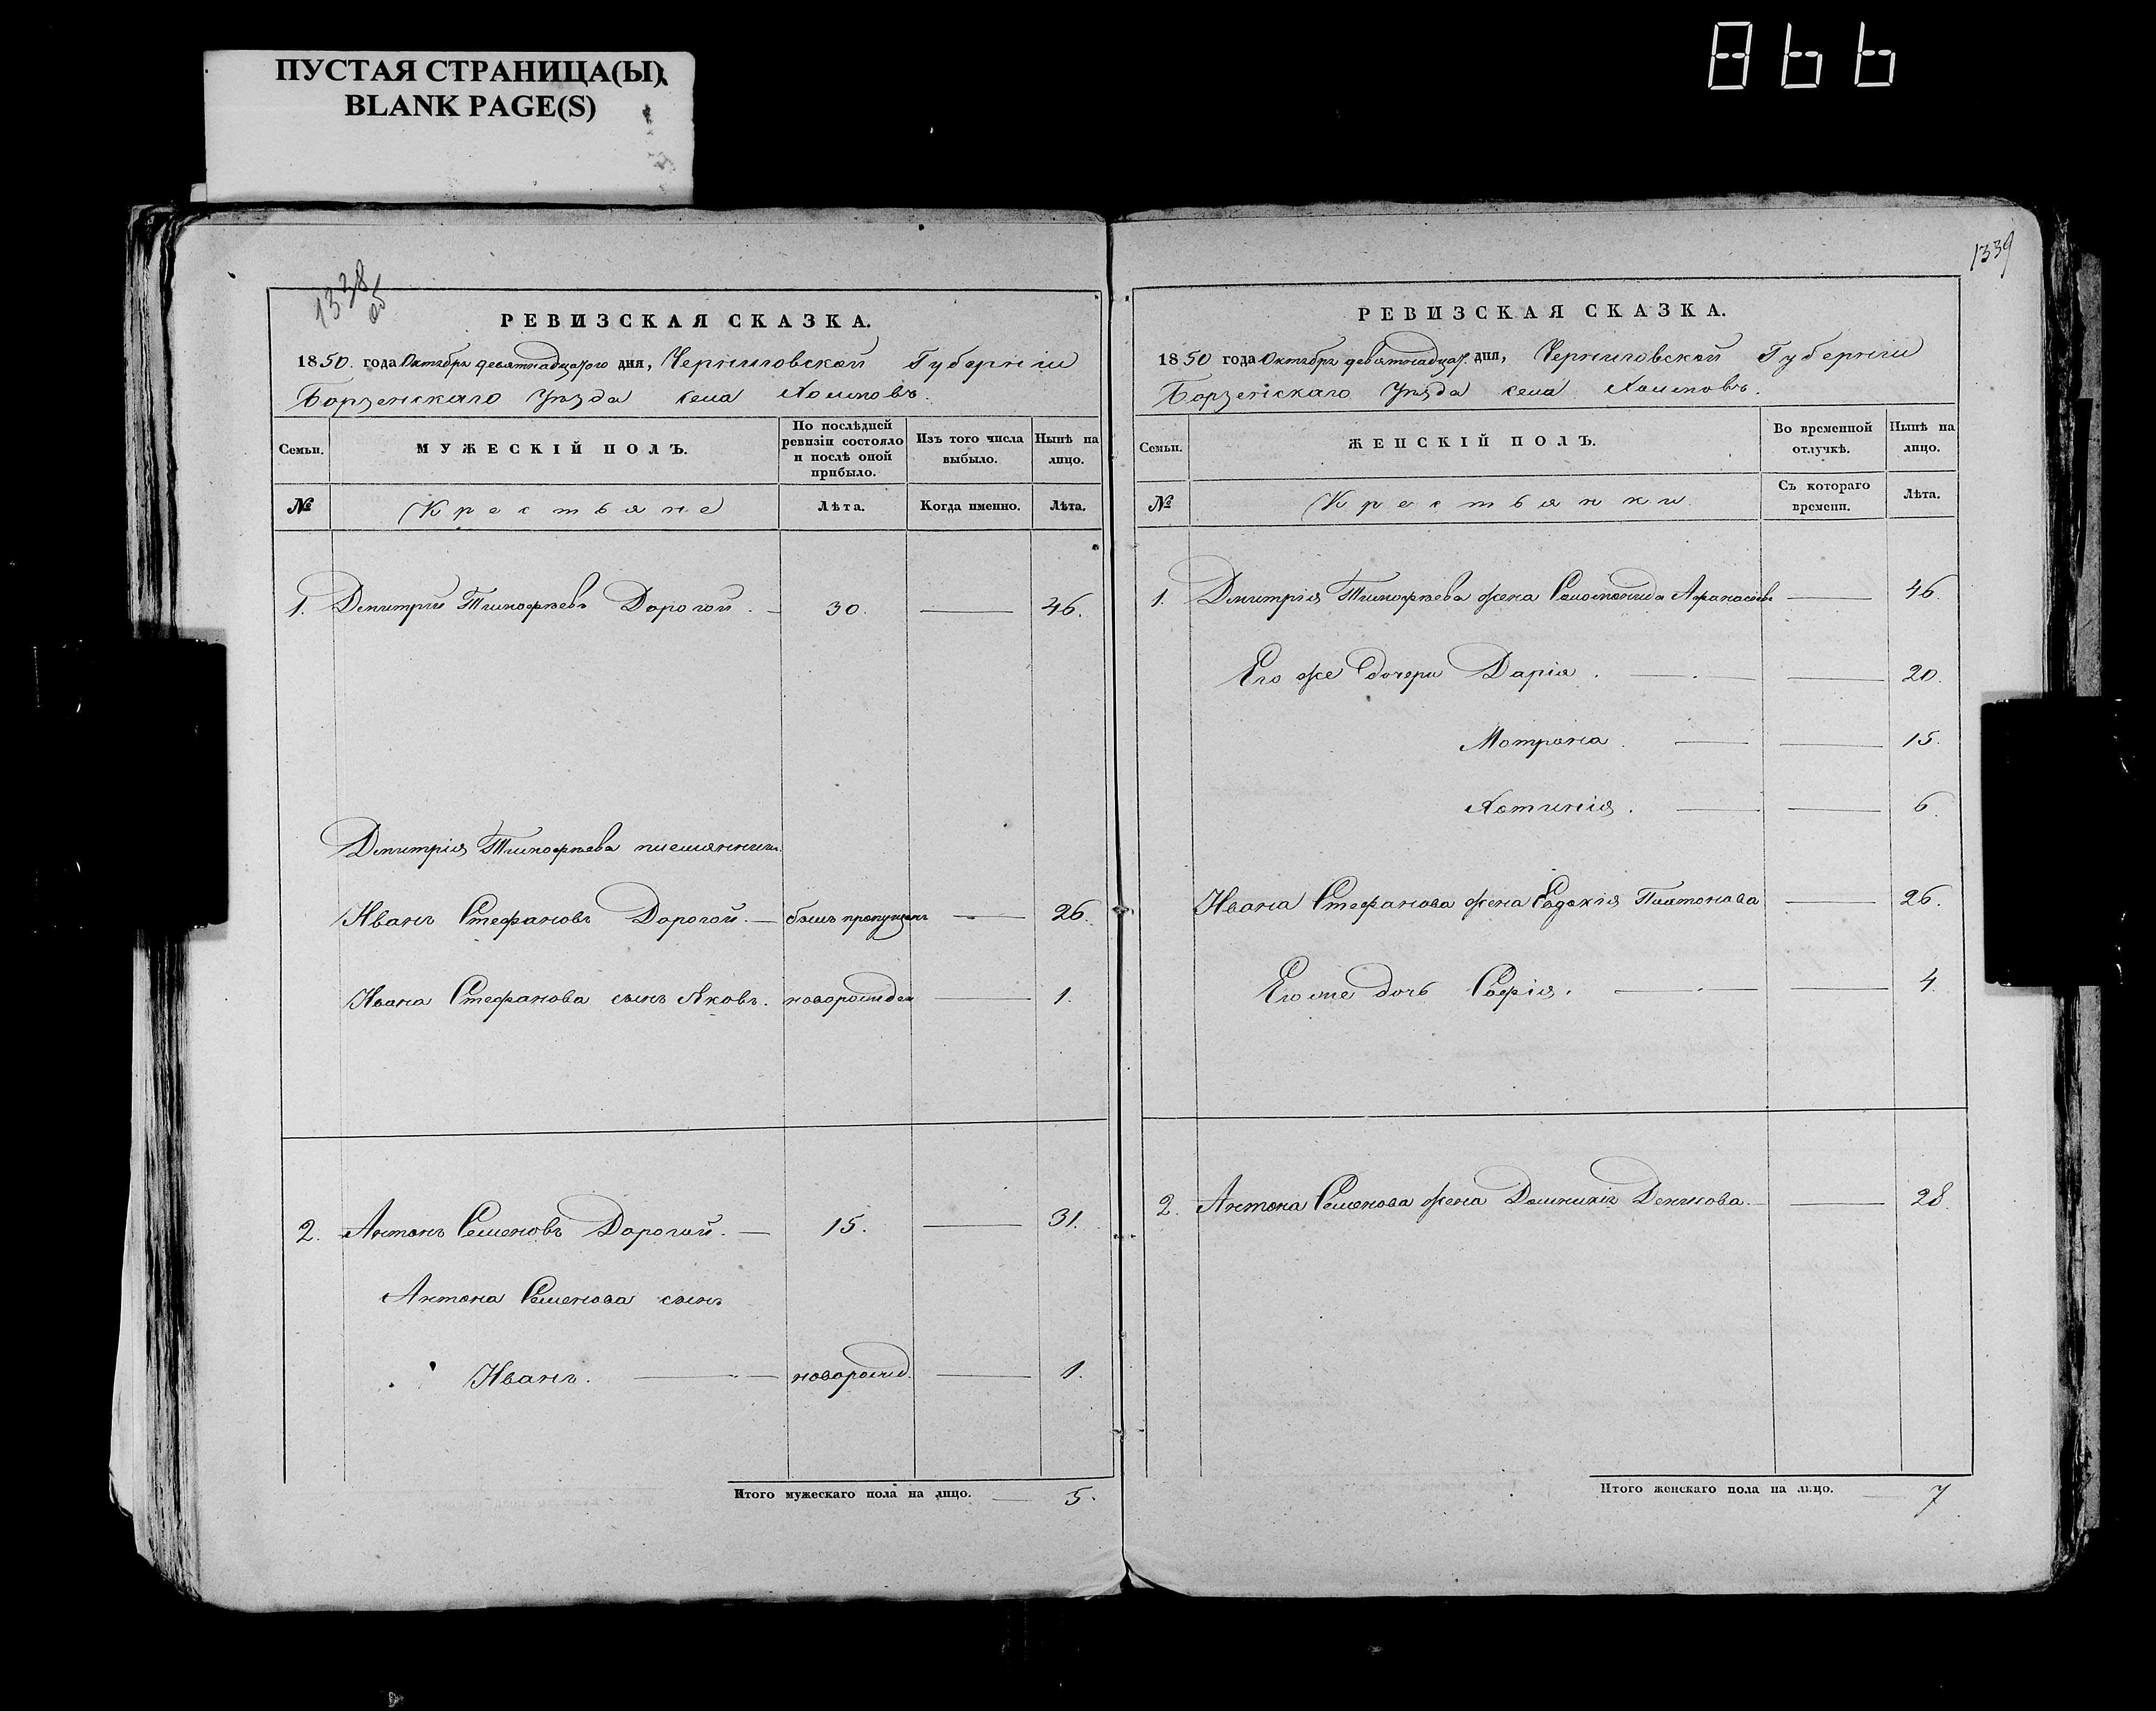 ПУСТАЯ СТРАНИЦА(Ы)
BLANK PAGE(S)
866
1338
об
РЕВИЗСКАЯ СКАЗКА.
1850. года Октября девятнадцатого дня, Черниговской Губерніи
Борзенскаго Уѣзда села
Семьи.
МУЖЕСКІЙ ПОЛЪ.
По послѣдней ревизіи состояло и послѣ оной прибыло.
Изъ того числа выбыло.
Нынѣ на лицо.
№
Крестьяне
Лѣта.
Когда именно.
Лѣта.
1. Дмитрій Тимофѣевъ Дорогой. — 30. — 46.
Дмитрія Тимофѣева племянникъ
Иванъ Стефановъ Дорогой. — былъ пропущенъ — 26.
Ивана Стефанова сынъ Яковъ. новорожден — 1.
2. Антонъ Семеновъ Дорогой. — 15. — 31.
Антона Семенова сынъ
Иванъ. — новорожд. — 1.
Итого мужескаго пола на лицо. — 5.
1339
РЕВИЗСКАЯ СКАЗКА.
1850 года Октября девятнадцат. дня, Черниговской Губерніи
Борзенскаго Уѣзда села
Семьи.
ЖЕНСКІЙ ПОЛЪ.
Во временной отлучкѣ.
Нынѣ на лицо.
№
Крестьянки.
Съ котораго времени.
Лѣта.
1. Дмитрія Тимофѣева жена Соломонида Афанасьев — 46.
Его же дочери Дарія. — 20.
Мотрона. — 15.
Хотинія. — 6.
Ивана Стефанова жена Евдокія Платонова — 26.
Его же дочь Софія. — 4.
2. Антона Семенова жена Домникія Денисова. — 28.
Итого женскаго пола на лицо. — 7